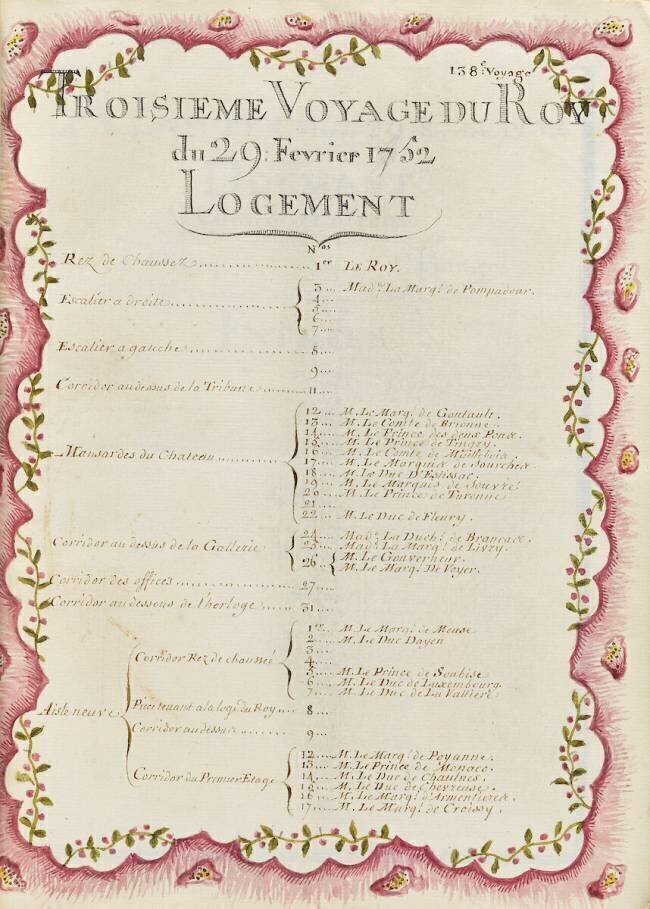 138.e Voyage
TROISIEME VOYAGE DU ROY
du 29: Fevrier 1752
LOGEMENT
Nos
Rez de Chaussez 1er LE ROY.
Escalier a droite 3 Made. La Marq: de Pompadour.
4
5
6
7
Escalier a gauche 8
9
Corridor au dessus de la Tribune 11
Mansardes du Chateau 12 M. Le Marq: de Gontault.
13 M. Le Comte de Brionne.
14 M. Le Prince des deux Ponts.
15 M. Le Prince de Tingry.
16 M. Le Comte de
17 M. Le Marquis de Sourches
18 M. Le Duc D'Estissac.
19 M. Le Marquis de Souvré
20 M. Le Prince de Turenne
21
22 M. Le Duc de Fleury.
Corridor au dessus de la Gallerie 24 Mad: La Duch: de Brancas.
25 Mad: La Marq: de Livry.
26 M. Le Gouverneur.
M. Le Marq: De Voyer.
Corridor des offices 27
Corridor au dessous de l'horloge 31
Aisle neuve
Corridor Rez de chaussée 1er M. Le Marq: de Meuse
2 M. Le Duc Dayen
3
4
5 M. Le Prince de Soubise
6 M. Le Duc de Luxembourg
7 M. Le Duc de La Valliere
Piece tenant a la loge du Roy 8
Corridor au dessus 9
Corridor du Premier Etage 12 M. Le Marq: de Poyanne.
13 M. Le Prince de Monaco.
14 M. Le Duc de Chaulnes.
15 M. Le Duc de Chevreuse.
16 M. Le Marq: d'Armentieres.
17 M. Le Marq: de Croissy.